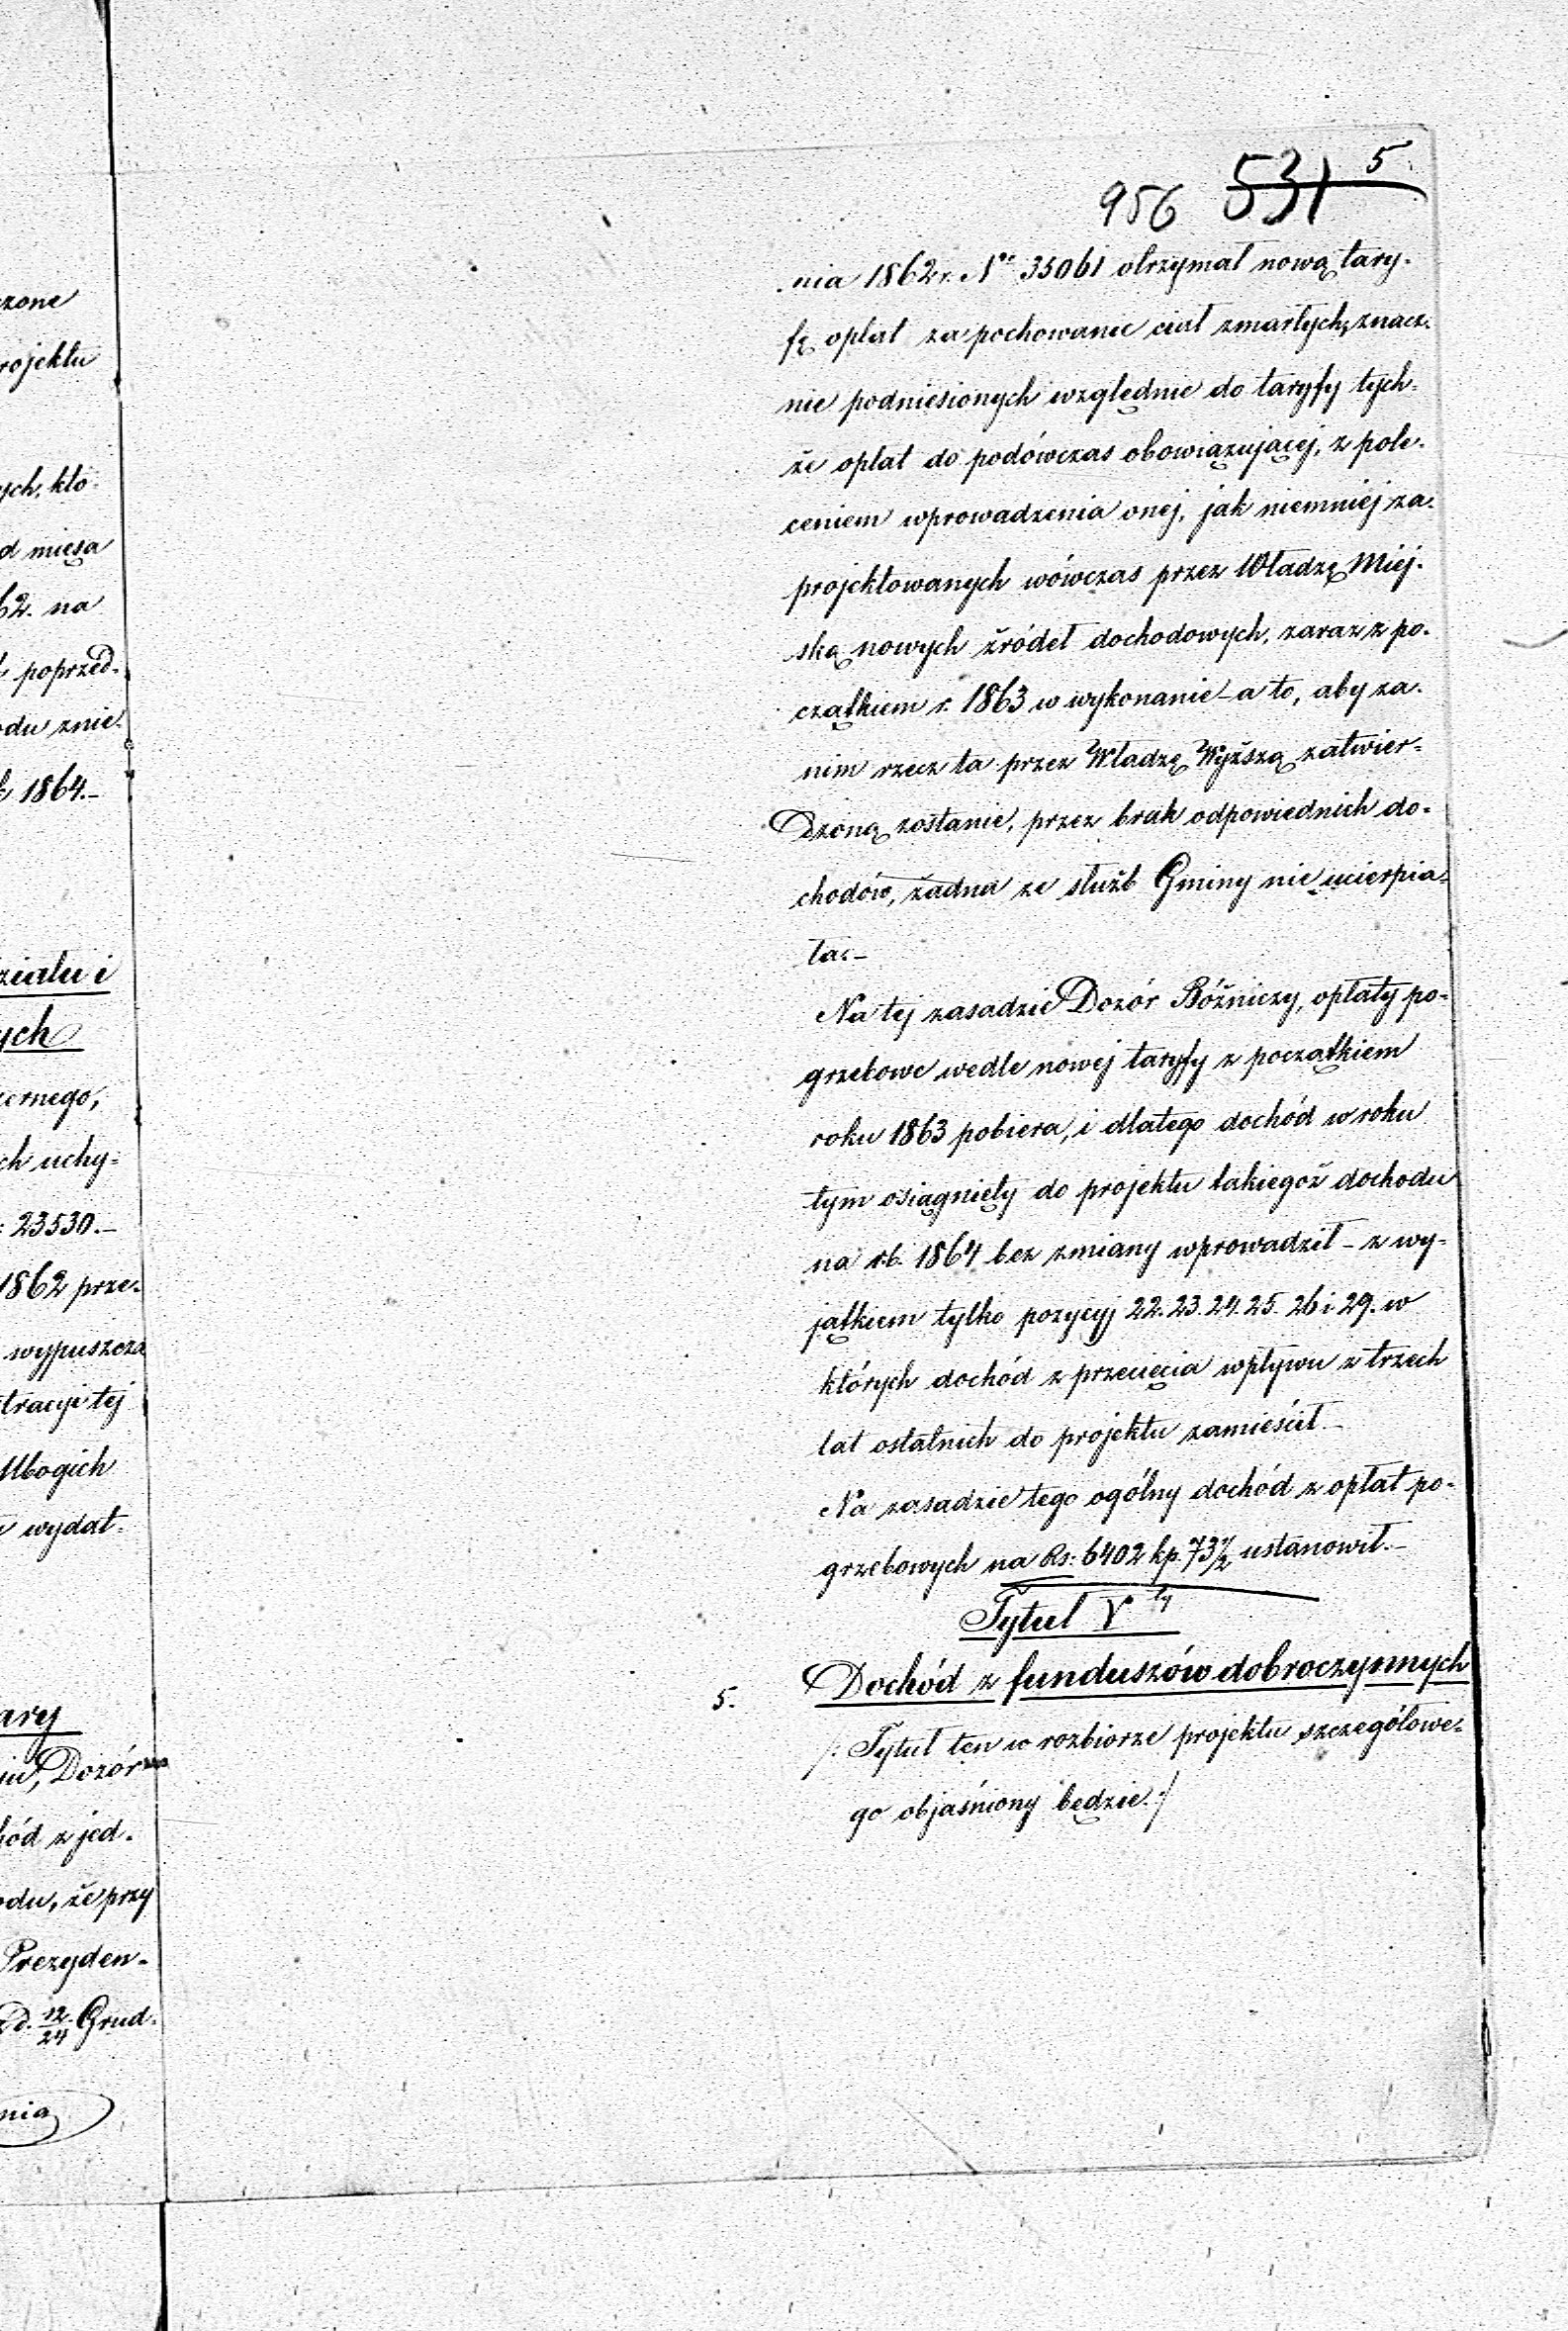 5
956 531
nia 1862 r. Nº 35061 otrzymał nową tary-
fę opłat za pochowanie ciał zmarłych, znacz-
nie podniesionych względnie do taryfy tych-
że opłat do podówczas obowiązującej, z pole-
ceniem wprowadzenia onej, jak niemniej za-
projektowanych wówczas przez Władzę Miej-
ską nowych źródeł dochodowych, zaraz z po-
czątkiem r. 1863 w wykonanie – a to, aby za-
nim rzecz ta przez Władzę Wyższą zatwier-
dzoną zostanie, przez brak odpowiednich do-
chodów, żadna ze służb Gminy nie ucierpia-
ła. –
Na tej zasadzie Dozór Bóżniczy, opłaty po-
grzebowe wedle nowej taryfy z początkiem
roku 1863 pobiera, i dlatego dochód w roku
tym osiągnięty do projektu takiegoż dochodu
na r.b. 1864 bez zmiany wprowadził – z wy-
jątkiem tylko pozycyj 22. 23. 24. 25. 26 i 29. w
których dochód z przecięcia wpływu z trzech
lat ostatnich do projektu zamieścił. –
Na zasadzie tego ogólny dochód z opłat po-
grzebowych na Rs: 6402 kp. 73½ ustanowił. –
Tytuł V ty
5. Dochód z funduszów dobroczynnych
/: Tytuł ten w rozbiorze projektu szczegółowe-
go objaśniony będzie :/
czone
rojektu
ych, któ-
d mięsa
62. na
poprzed-
odu znie-
k 1864. –
działu i
ych
ernego,
ch uchy-
: 23530. –
1862 prze-
wypuszcza
tracyi tej
Ubogich
wydat-
ary
niu, Dozór
hód z jed-
odu, że przy
Prezyden-
z d. 12/24 Grud-
nia